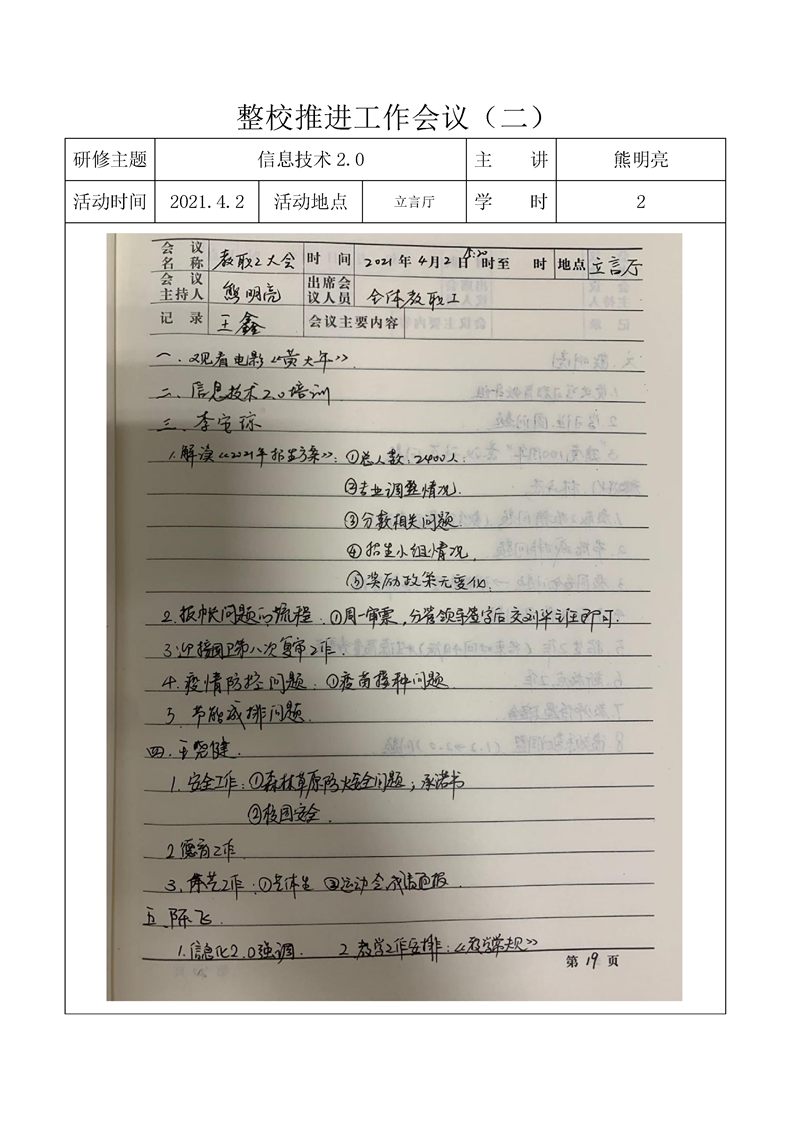 整校推进工作会议（二）
研修主题 信息技术2.0 主 讲 熊明亮
活动时间 2021.4.2 活动地点 立言厅 学 时 2
会议名称 教职工大会 时 间 2021年4月2日 时至 时 地点 立言厅
会议主持人 熊明亮 出席会议人员 全体教职工
记 录 王鑫 会议主要内容
一．观看电影《黄大年》．
二、信息技术2.0培训
三、李宝琼
1.解读《2021年招生方案》：①总人数：2400人．
②专业调整情况．
③分数相关问题
④招生小组情况，
⑤奖励政策无变化．
2.报帐问题的流程．①周一审票，分管领导签字后交刘半主任即可．
3.迎接国卫第八次复审工作．
4.疫情防控问题：①疫苗接种问题．
5．节能减排问题．
四．王尧健．
1．安全工作：①森林草原防火安全问题；承诺书
②校园安全．
2.德育工作．
3．体艺工作：①艺体生 ②运动会，
五、陈飞．
1.信息化2.0强调． 2．教学工作安排：《教学常规》
第 19 页